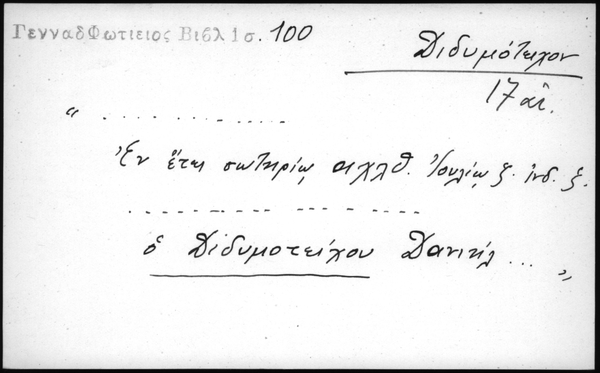 ΓενναδΦωτιειος Βιβλ 1 σ. 100
Διδυμότειχον
17 αἰ.
" . . . . . . . . . . . .
Ἐν ἔτει σωτηρίῳ αχλθ. Ἰουλίῳ ξ. ἰνδ. ξ.
. . . . . . . . . . . . . . .
ὁ Διδυμοτείχου Δανιήλ ... "